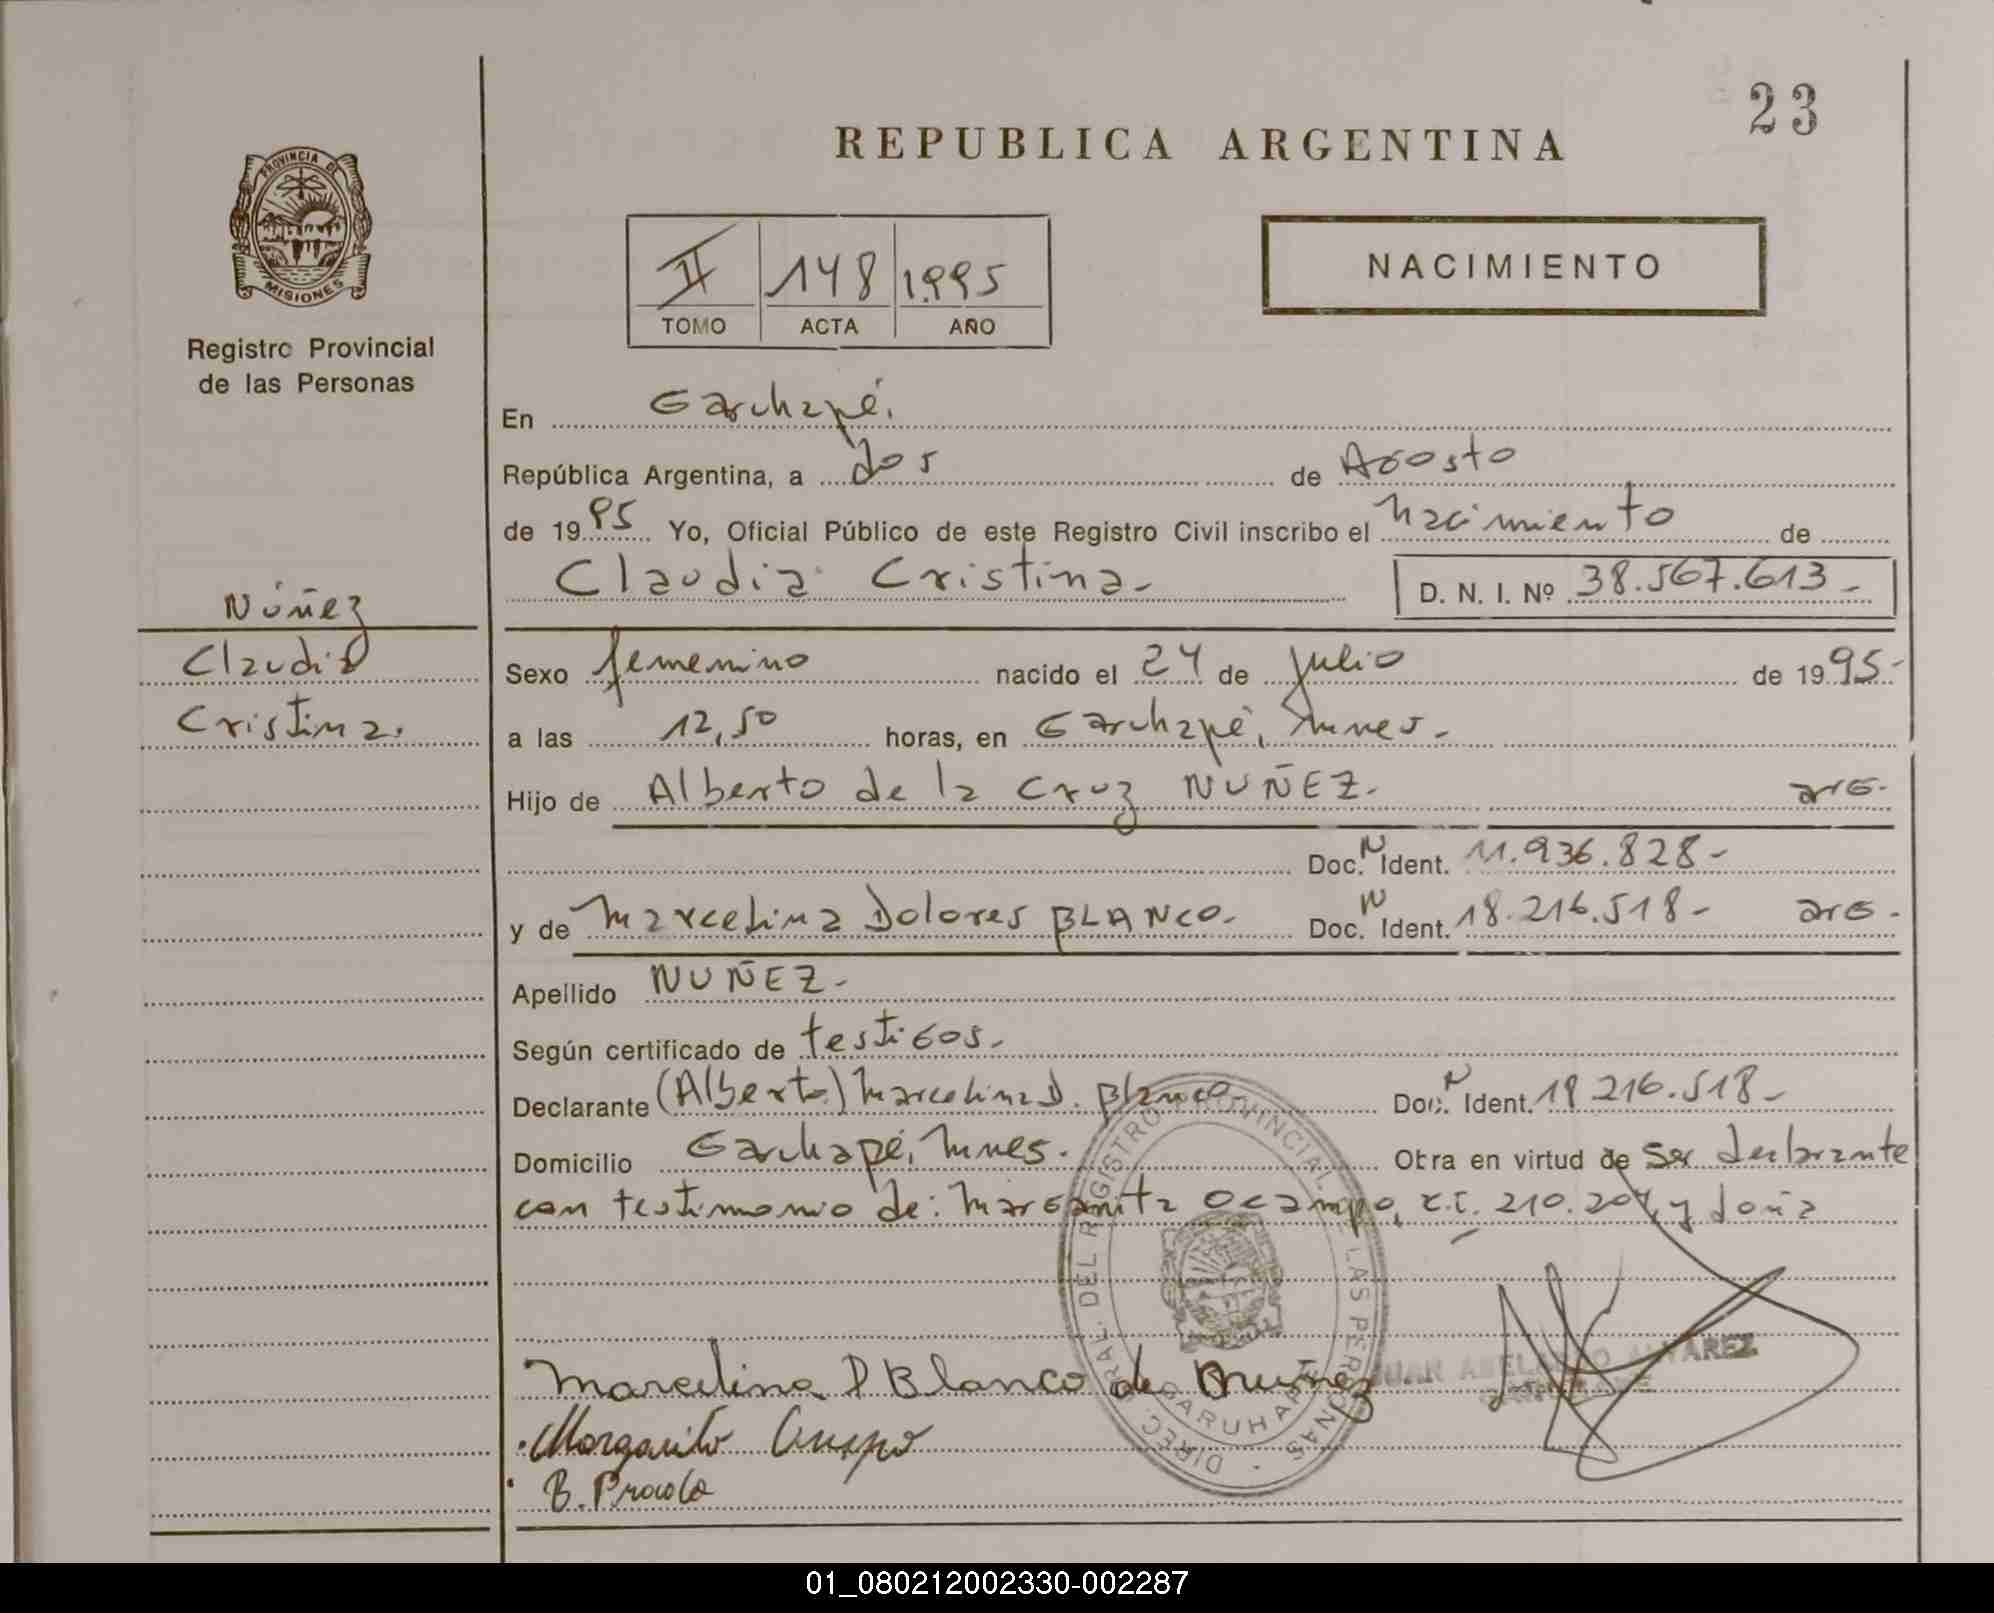 23
REPUBLICA ARGENTINA
PROVINCIA DE
MISIONES
Registro Provincial
de las Personas
II 148 1995
TOMO ACTA AÑO
NACIMIENTO
En Garuhapé.
República Argentina, a dos de Agosto
de 1995 Yo, Oficial Público de este Registro Civil inscribo el nacimiento de
Claudia Cristina- D. N. I. Nº 38.567.613-
Núñez
Claudia
Cristina.
Sexo femenino nacido el 24 de julio de 1995-
a las 12,50 horas, en Garuhapé, Mnes-
Hijo de Alberto de la Cruz NUÑEZ- arg.
Doc. N Ident. 11.936.828-
y de Marcelina Dolores BLANCO- Doc. N Ident. 18.216.518- arg.
Apellido NUÑEZ-
Según certificado de testigos-
Declarante (Alberto) Marcelina D. Blanco- Doc. N Ident. 18 216.518-
Domicilio Garuhapé, Mnes. Obra en virtud de Ser declarante
con testimonio de: Margarita Ocampo, C.I. 210.204, y doña
DIREC. GRAL. DEL REGISTRO PROVINCIAL DE LAS PERSONAS
GARUHAPE
Marcelina D Blanco de Nuñez
JUAN ABELARDO ALVAREZ
Margarita
B.
01_080212002330-002287